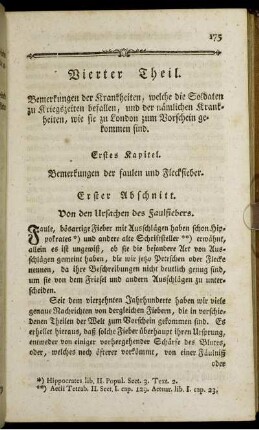 175
Vierter Theil.
Bemerkungen der Krankheiten, welche die Soldaten
zu Kriegszeiten befallen, und der nämlichen Krank-
heiten, wie sie zu London zum Vorschein ge-
kommen sind.
Erstes Kapitel.
Bemerkungen der faulen und Fleckfieber.
Erster Abschnitt.
Von den Ursachen des Faulfiebers.
Faule, bösartige Fieber mit Ausschlägen haben schon Hip-
pokrates *) und andere alte Schriftsteller **) erwähnt,
allein es ist ungewiß, ob sie die besondere Art von Aus-
schlägen gemeint haben, die wir jetzo Petschen oder Flecke
nennen, da ihre Beschreibungen nicht deutlich genug sind,
um sie von dem Friesel und andern Ausschlägen zu unter-
scheiden.
Seit dem vierzehnten Jahrhunderte haben wir viele
genaue Nachrichten von dergleichen Fiebern, die in verschie-
denen Theilen der Welt zum Vorschein gekommen sind. Es
erhellet hieraus, daß solche Fieber überhaupt ihren Ursprung,
entweder von einiger vorhergehender Schärfe des Blutes,
oder, welches noch öfterer vorkömmt, von einer Fäulniß
oder
*) Hippocrates lib. II. Popul. Sect. 3. Text. 2.
**) Aetii Tetrab. II. Sect. I. cap. 129. Actuar. lib. I. cap. 23.